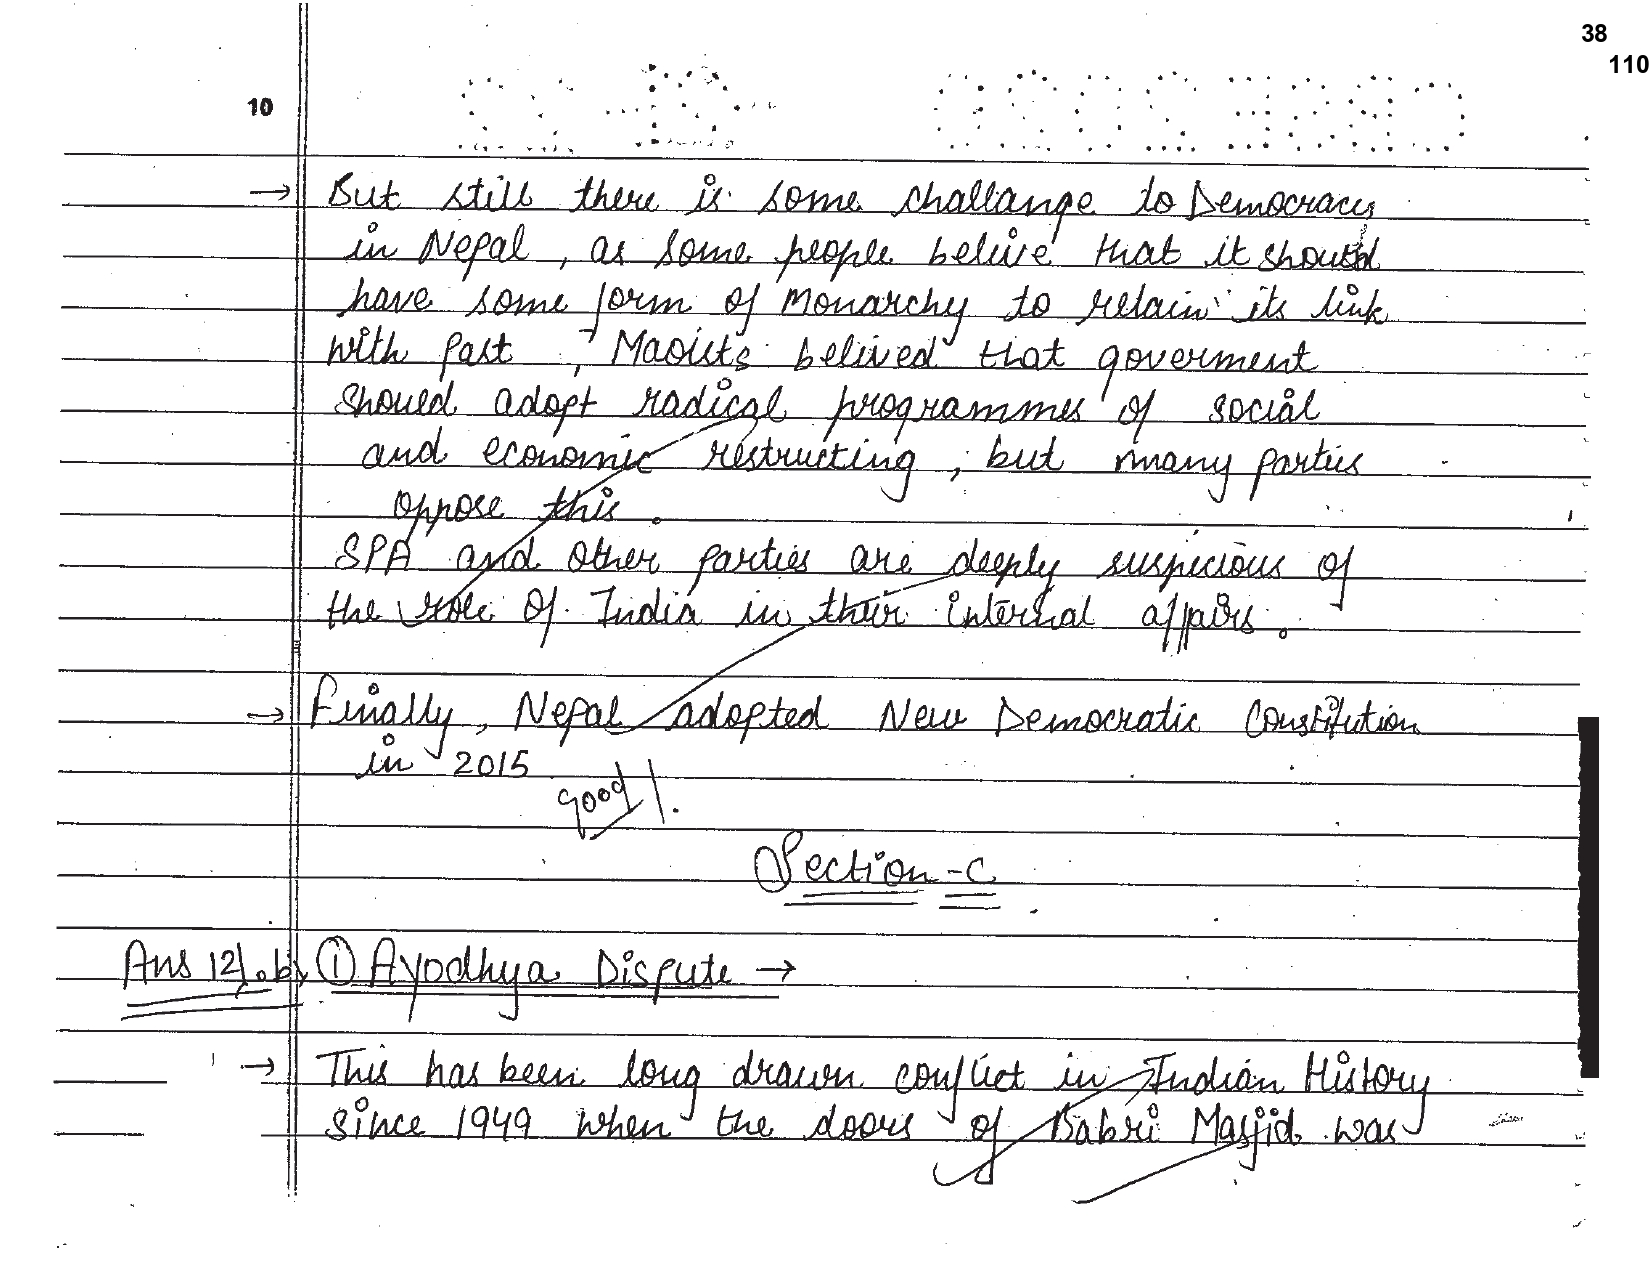 38
110
10
→ But still there is some challange to Democracy
in Nepal, as some people belive that it should
have some form of Monarchy to retain its link
with past, Maoists believed that goverment
should adopt radical programmes of social
and economic restructing, but many parties
oppose this.
SPA and other parties are deeply suspicious of
the role of India in their internal affairs.
→ Finally, Nepal adopted New Democratic Constitution
in 2015
good
Section-C
Ans 12). b) ① Ayodhya Dispute →
→ This has been long drawn conflict in Indian History
since 1949 when the doors of Babri Masjid was